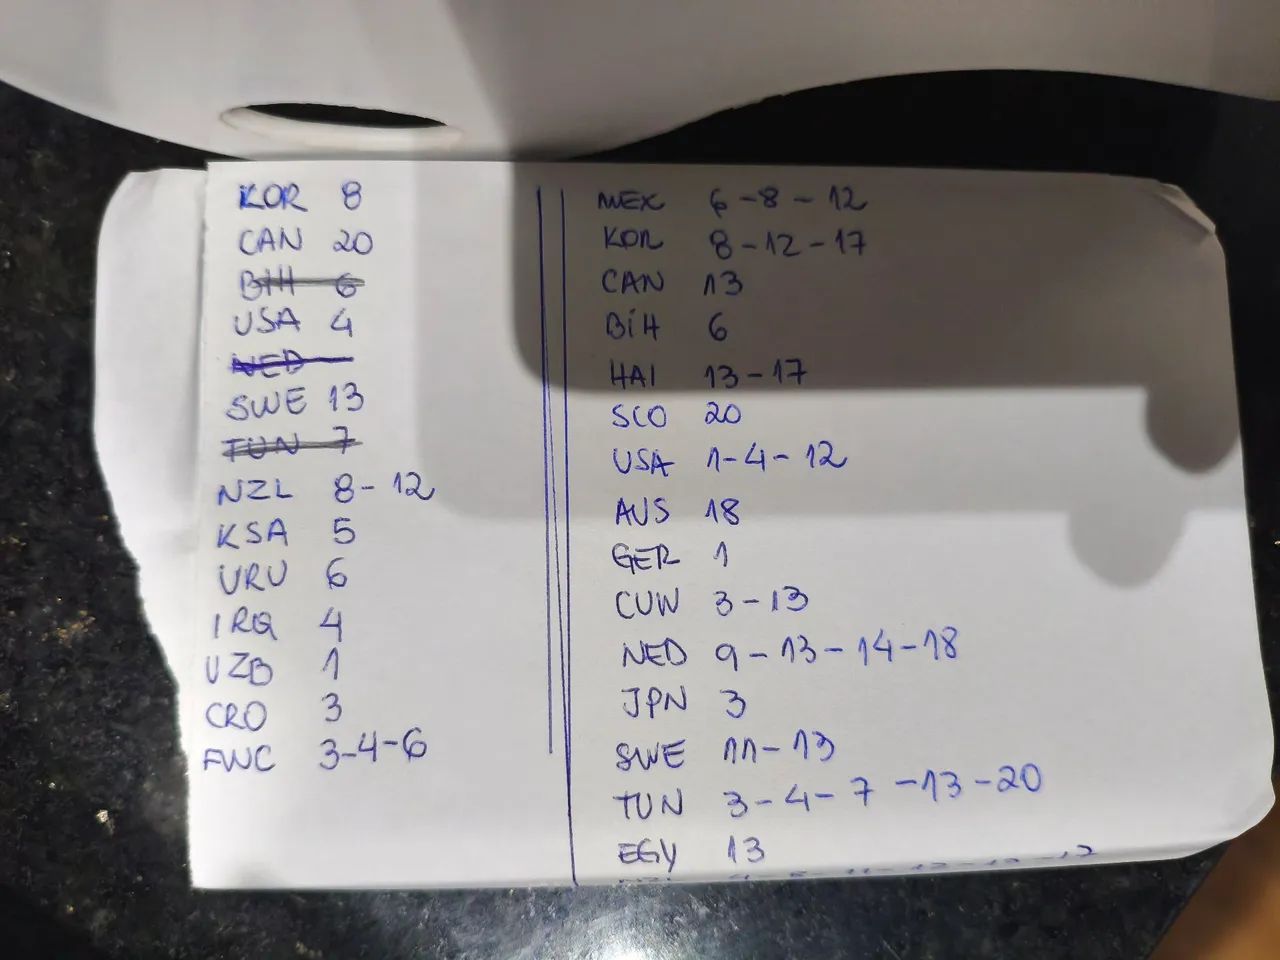 KOR 8
CAN 20
BIH 6
USA 4
NED
SWE 13
TUN 7
NZL 8-12
KSA 5
URU 6
IRQ 4
UZB 1
CRO 3
FWC 3-4-6
MEX 6-8-12
KOR 8-12-17
CAN 13
BiH 6
HAI 13-17
SCO 20
USA 1-4-12
AUS 18
GER 1
CUW 3-13
NED 9-13-14-18
JPN 3
SWE 11-13
TUN 3-4-7-13-20
EGY 13